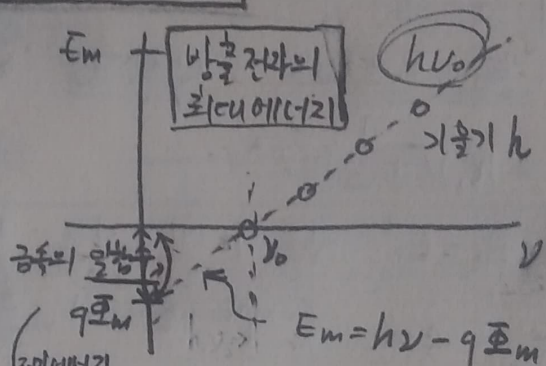 Em
방출 전자의
최대 에너지
hν₀
기울기 h
ν₀
ν
금속의 일함수
qΦm
Em = hν - qΦm